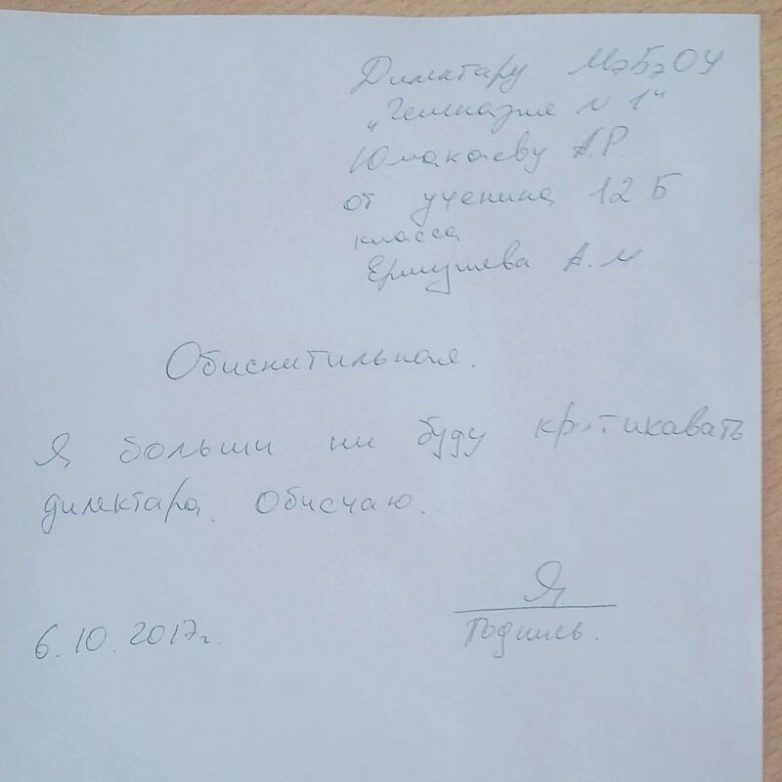 Дилектару МэБэОУ
„Гемназия N 1"
Юмакаеву А.Р.
от ученика 12 Б
класса
Ермушева А.М
Обиснитильная.
Я больши ни буду критикавать
дилектара. Обисчаю.
Я
Подпись.
6.10.2017г.